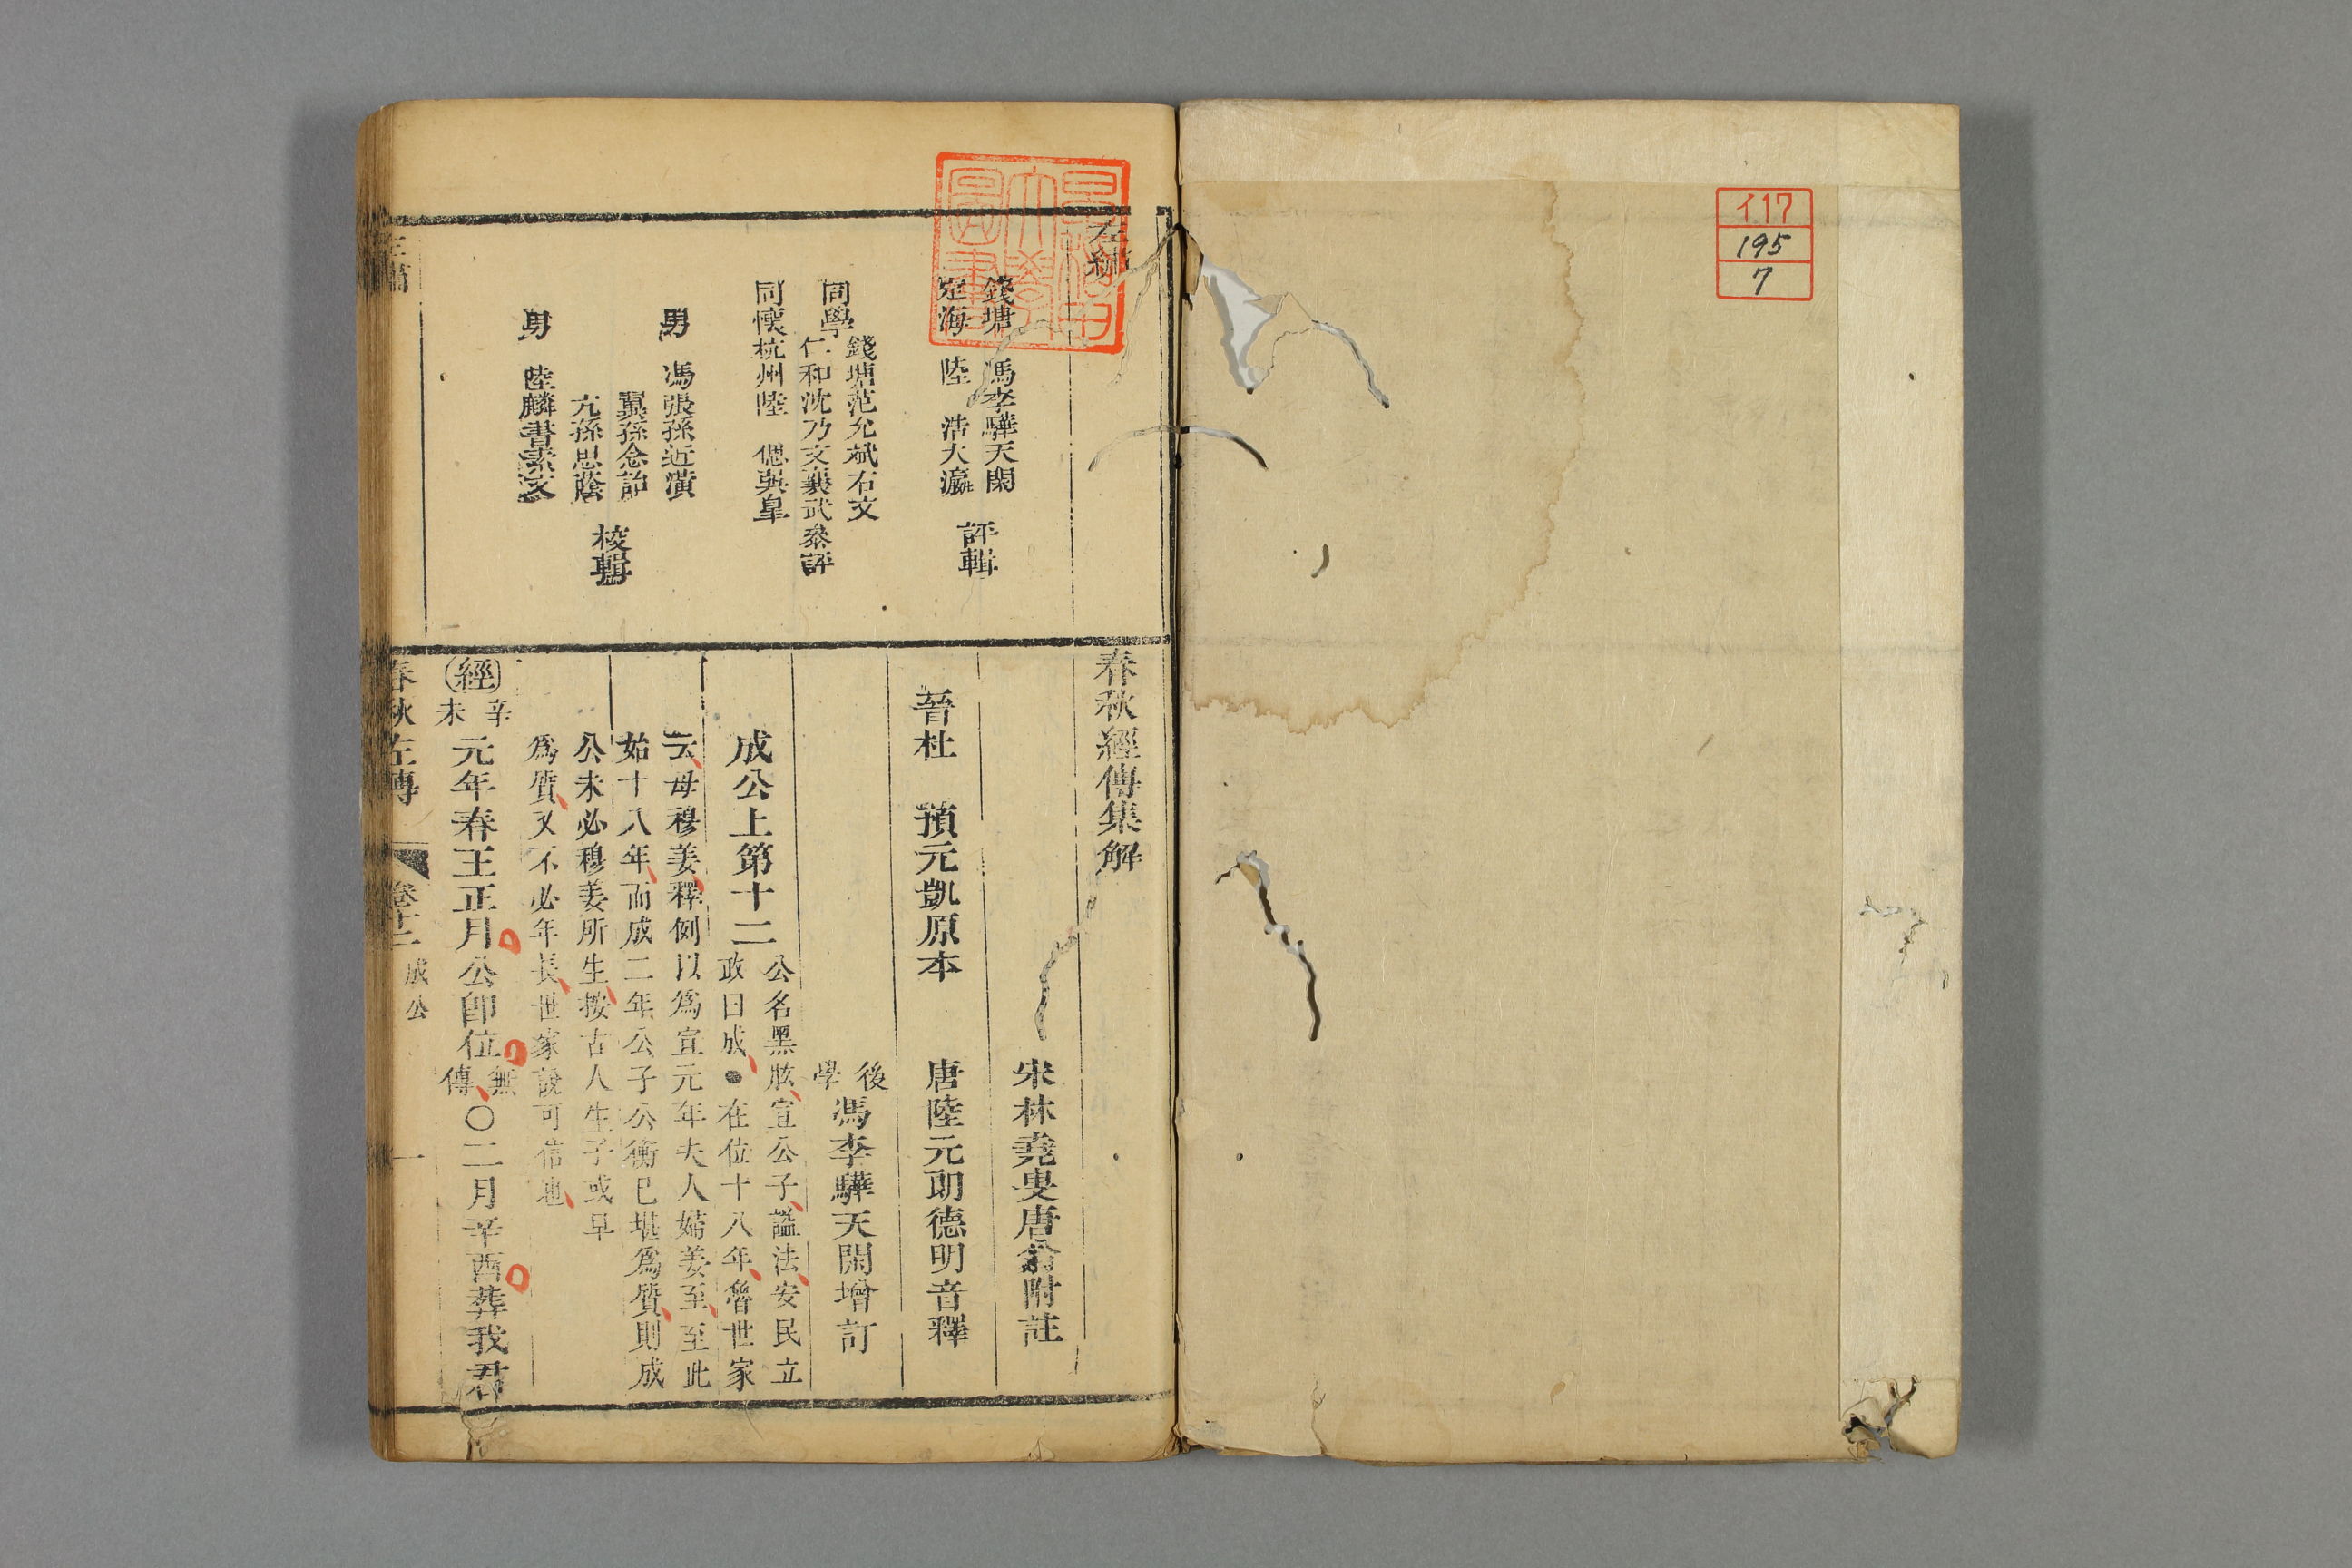 イ17
195
7
左繡
錢塘 馮李驊天閑
定海 陸 浩大瀛
評輯
同學
錢塘范允斌右文
仁和沈乃文襄武
參評
同懷杭州陸 偲奐皇
男 馮張孫近潢
翼孫念詒
亢孫思蔭
男 陸麟書素文
校輯
春秋經傳集解
宋林堯叟唐翁附註
晉杜 預元凱原本
唐陸元朗德明音釋
後學馮李驊天閑增訂
成公上第十二
公名黑肱宣公子謚法安民立
政曰成●在位十八年魯世家
云母穆姜釋例以為宣元年夫人婦姜至至此
始十八年而成二年公子公衡已堪為質則成
公未必穆姜所生按古人生子或早
為質又不必年長世家說可信也
經辛未元年春王正月公卽位無傳〇二月辛酉葬我君
春秋左傳 卷十二 成公 一